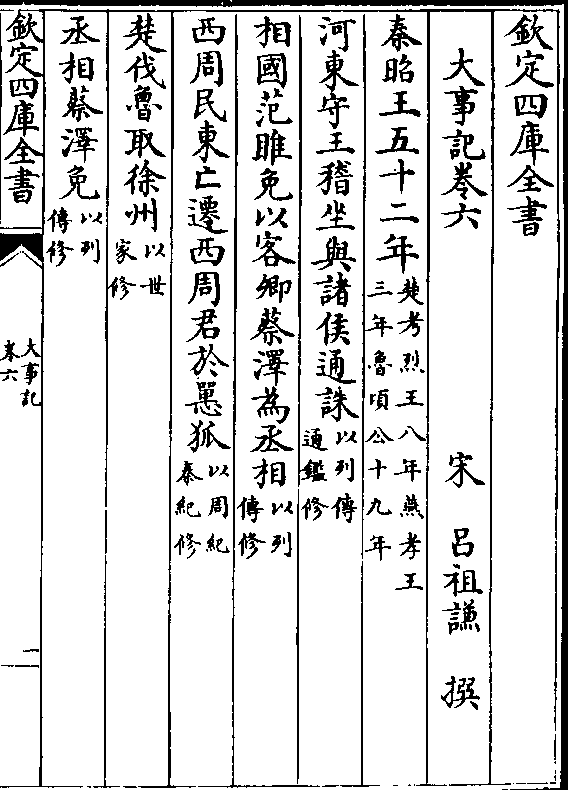 欽定四庫全書
大事記卷六
宋 呂祖謙 撰
秦昭王五十二年楚考烈王八年燕孝王三年魯頃公十九年
河東守王稽坐與諸侯通誅以列傳通鑑修
相國范雎免以客卿蔡澤為丞相以列傳修
西周民東亡遷西周君於𢠸狐以周紀秦紀修
楚伐魯取徐州以世家修
丞相蔡澤免以列傳修
欽定四庫全書
大事記
卷六
一